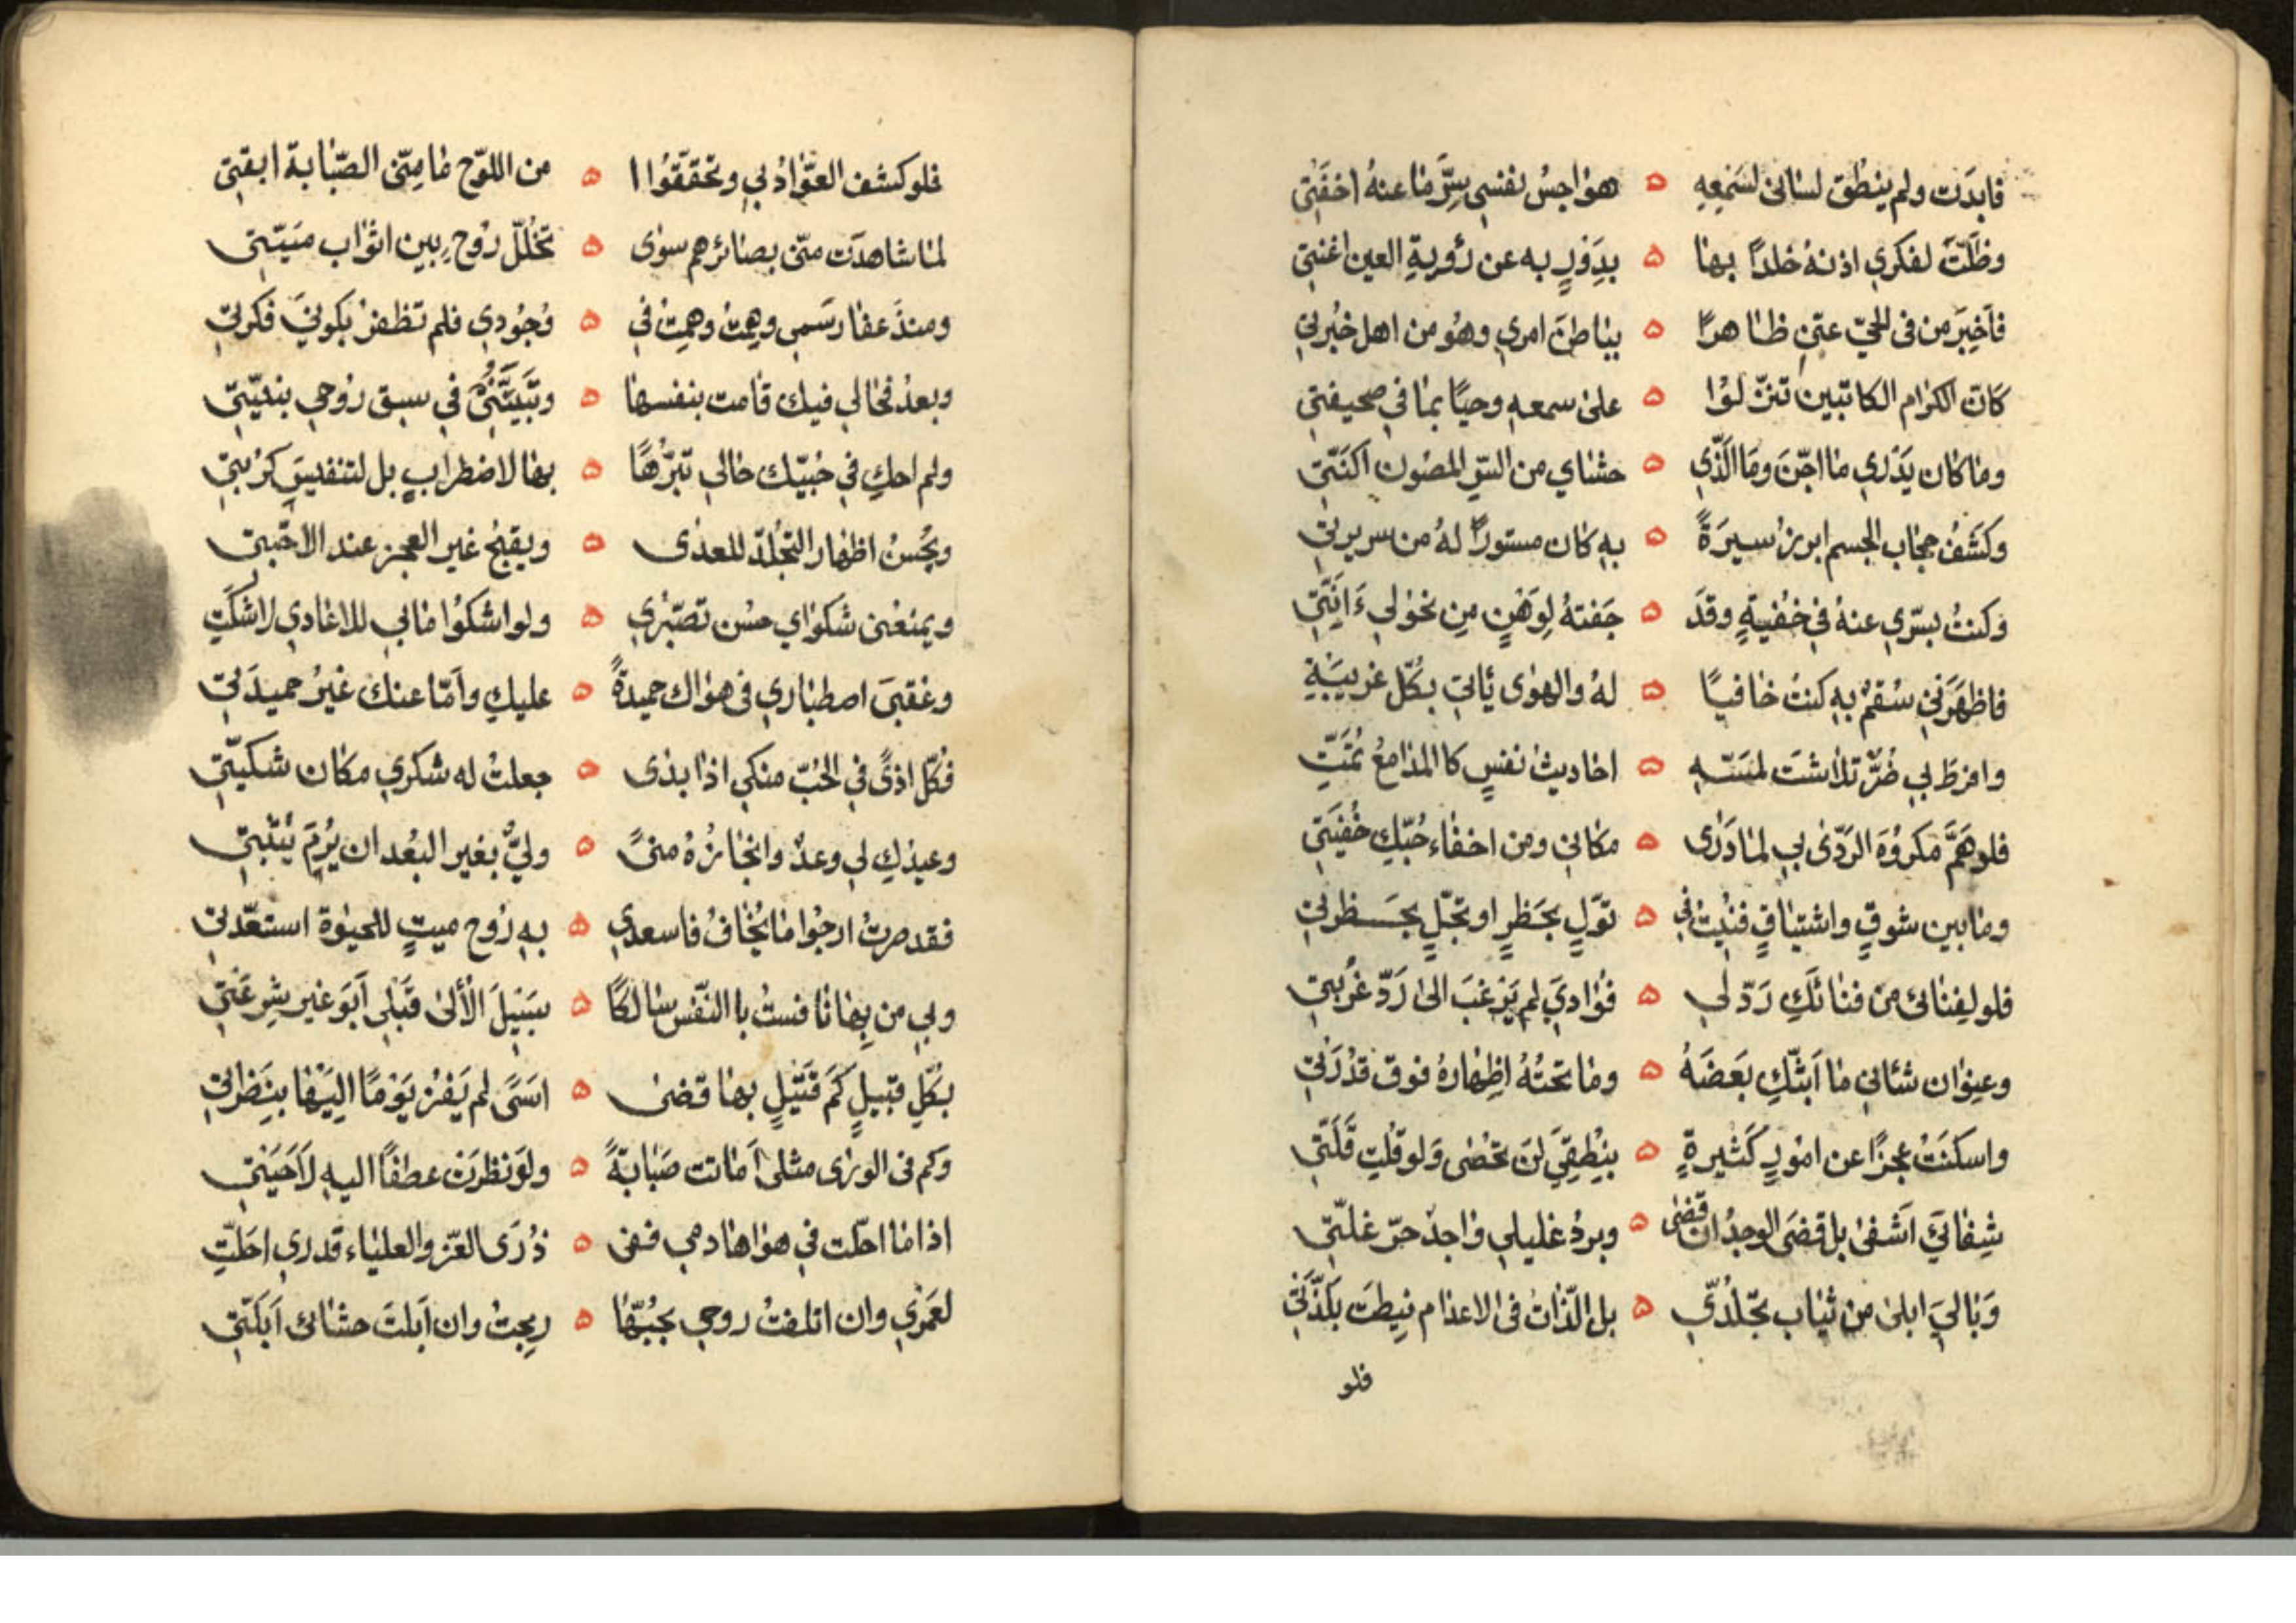 فابدَت ولم ينطق لساني لسَمعِهِ ه هواجسُ نفسي سِرَّ ما عنهُ اخفَتِي
وظلَّت لفكري اذنهُ خلدًا بها ه بدَورٍ به عن رُؤيةِ العين اغنتي
فاَخبَر من في الحيّ عنّي ظاهرًا ه بباطن امري وهُو من اهل خبُرتي
كَان الكرام الكاتبين تنزّلوُا ه على سمعهِ وحيًا بما في صحيفتي
وما كان يَدْري ما اجّنَ ومَا الّذي ه حشاي من السّرِ المصُون اكنّتي
وكَشفُ حجاب الجسم ابرز سيرَةً ه بهِ كان مستورًا لهُ من سريرتي
وكنتُ بسرّي عنهُ في خفُيةٍ وقدَ ه خَفتهُ لِوَهنٍ مِن نحوُلي ءَانَّتِي
فاظهَرَني سُقمٌ بهِ كنتُ خافيًا ه لهُ والهوى ياتي بكلّ غريبَةِ
وافرطَ بي ضُرٌّ تلاشتَ لمسّهِ ه احاديثُ نفسٍ كا المدامعُ نُمّتِ
فلوهَمَّ مَكروُهَ الرّدَى بي لما دَرَى ه مكاني ومن اخفاء حُبّكِ خُفيَتي
وما بين شوقٍ واشتياقٍ فنيُت في ه توَلٍ بحَظرٍ او تجَلٍ بحَظرتي
فلو لفِنائى من فنائكِ رَدّ لي ه فؤاديَ لم يَرغبَ الى رَدّ غُربتي
وعنوان شاني ما اَبثّكِ بعَضَهُ ه وما تحتهُ اظِهارهُ فوق قدُرَتي
واسكتَ عجزًا عن امورٍ كَثيرةٍ ه بنُطقِيَ لنَ تحُصى ولو قلتِ قَلَّتي
شِفائيَ اَشفى بل قضَى الوجدُ ان قضى ه وبردُ غليلي واجدٌ حرّ غلّتي
وَبالَيَ ابلى من ثياب تجلدّي ه بل الذّاتُ في الاعدام نيِطتَ بلذّتي
فلو
فلو كشف العوّاد بي وتحققّوُا ا ه من اللوّح ما مِنّى الصّبابة ابقتِي
لما شاهدَت منّى بصائرهم سوى ه تخلُلّ روُحٍ بين اثواب ميّتِي
ومنذ عفا رسَمي وهمِتُ وهمِتُ في ه وُجُودي فلم تظفر بكوني فكرتي
وبعدُ فحالي فيك قامت بنفسها ه وبَيّنَتي في سبق روُحي بنيّتي
ولم احكِ في حُبيّك حالي تبرّمًا ه بها لاضطرابٍ بل لتنفيسَ كرُبتي
ويحُسنُ اظهار التجلّد للعدى ه ويقبحُ غير العجز عند الاحبّتي
ويمنعنى شكواي حسُن تصبّري ه ولو اشكوُا ما بي للاعادي لاشكَتِ
وعقبَى اصطباري في هواك حميدةً ه عليكِ واَمّا عنك غيُر حميدَتي
فكلّ اذىً في الحُبّ منكي اذا بدى ه جعلتُ له شكري مكان شكيّتي
وعيدُكِ لي وعدٌ وانجازهُ منىً ه وليٌّ بغير البُعد ان يُرمَ يثبتي
فقد صرتُ ارجُوا ما يخُافُ فاسعدي ه بهِ روُح ميتٍ للحيوة استعدّتي
وبي من بِها نافستُ با النّفس سالكًا ه سبَيلَ الاُلى قبَلي اَبَو غير شِرعَتي
بكلّ قبيلٍ كَم قَتيلٍ بها قضى ه اسَىً لم يَفُز يَومًا اليَها بنِظَراتي
وكم في الورى مثلى اَماتت صَبابةً ه ولوَ نظرَت عطفًا اليهِ لاَحيَتي
اذا ما احلّت في هواها دمي ففى ه ذُرَى العّز والعلياء قدري احَلّتِ
لعَمري وان اتلفتُ روحي بحُبّها ه رَبحِتُ وان اَبلتَ حشائ اَبَلّتي